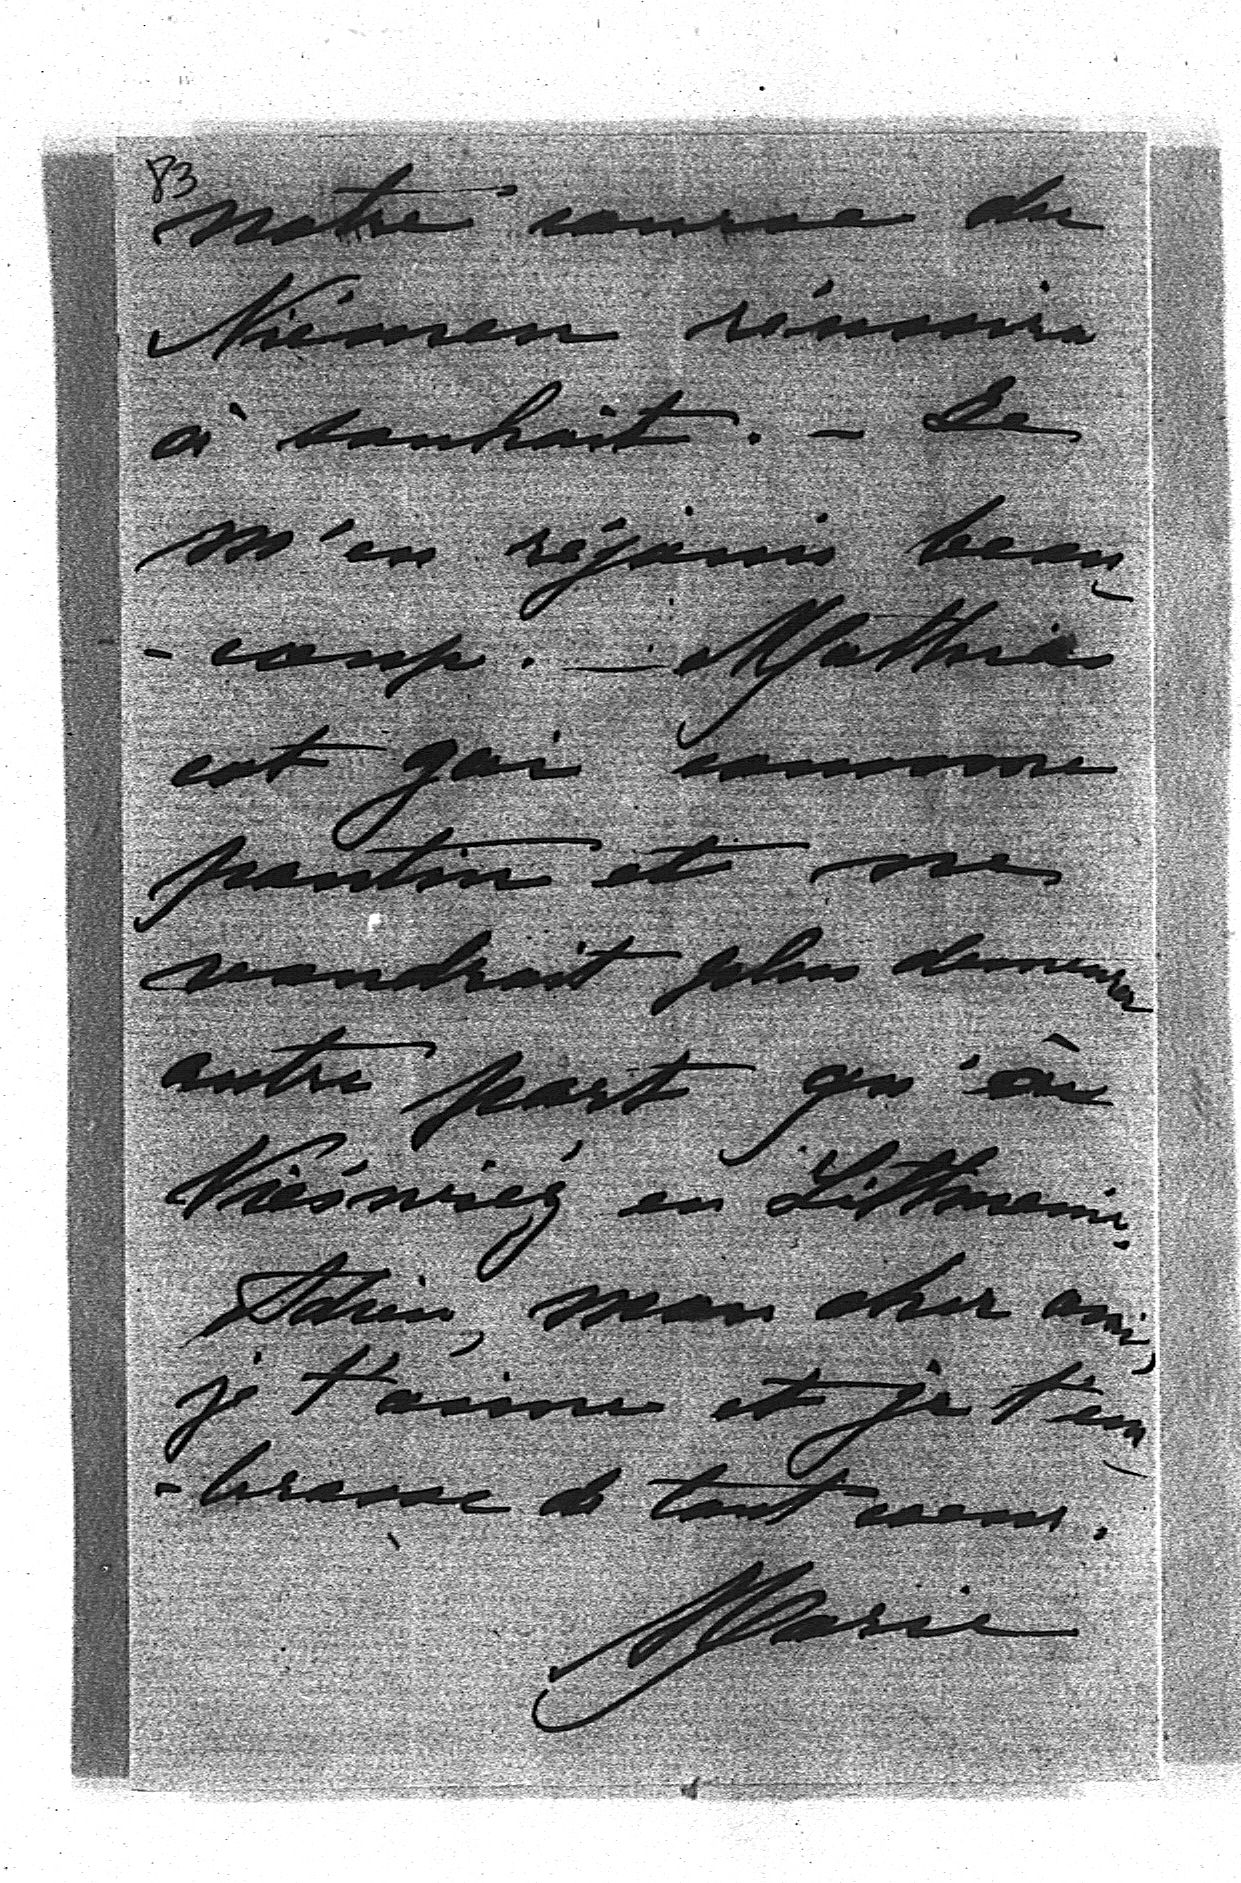 83
notre course du
Niémen réussira
à souhait. - Je
m'en réjouis beau
- coup. - Mathias
est gai comme
pantin et ne
voudrait plus demeurer
autre part qu'à
en Lithuanie.
Adieu, mon cher ami,
je t'aime et je t'em
- brasse de tout coeur.
Marie